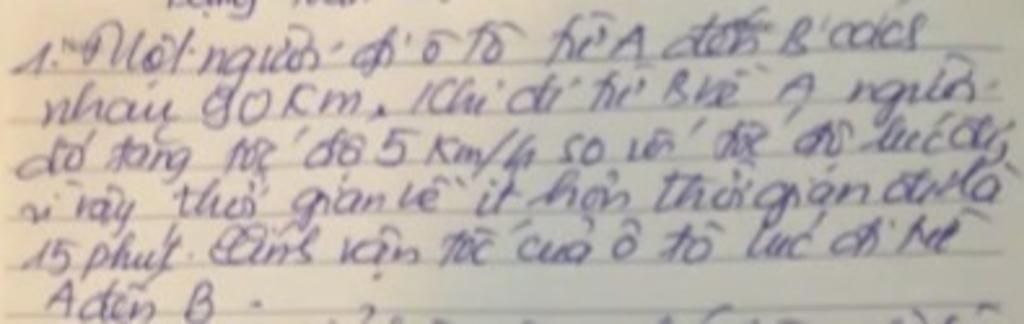 1. Một người đi ô tô từ A đến B cách
nhau 90 Km. Khi đi từ B về A người
đó tăng tốc độ 5 Km/h so với tốc độ lúc đi,
vì vậy thời gian về ít hơn thời gian đi là
15 phút. Tính vận tốc của ô tô lúc đi từ
A đến B.